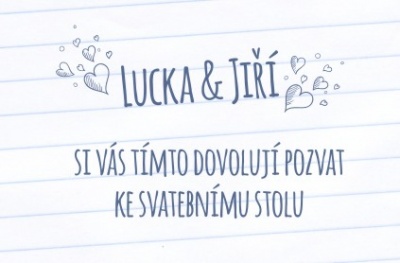 Lucka & Jiří
si vás tímto dovolují pozvat
ke svatebnímu stolu